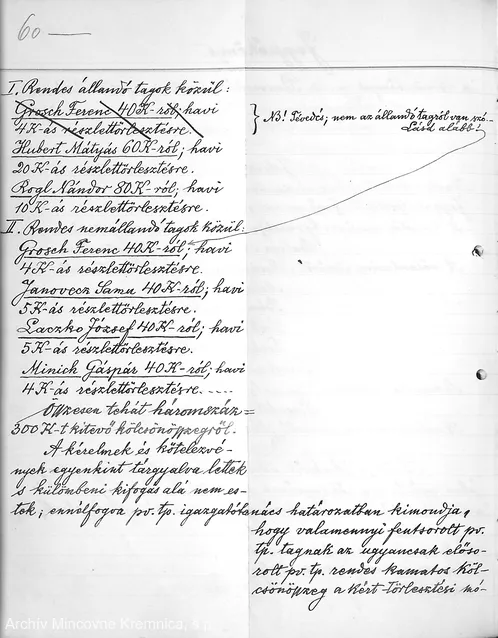 60 —
I. Rendes állandó tagok közül:
Grosch Ferenc 40K-ról; havi
4K-ás részlettörlesztésre.
} NB! Tévedés; nem az állandó tagról van szó.-
Lásd alább!
Hubert Mátyás 60K-ról; havi
20K-ás részlettörlesztésre.
Rogl Nándor 80K-ról; havi
10K-ás részlettörlesztésre.
II. Rendes nemállandó tagok közül:
Grosch Ferenc 40K-ról; havi
4K-ás részlettörlesztésre.
Janovecz Samu 40K-ról; havi
5K-ás részlettörlesztésre.
Laczko József 40K-ról; havi
5K-ás részlettörlesztésre.
Minich Gáspár 40K-ról; havi
4K-ás részlettörlesztésre. ....
Összesen tehát háromszáz=
300K-t kitevő kölcsönösszegről.
A kérelmek és kötelezvé-
nyek egyenkint tárgyalva lettek
s külömbeni kifogás alá nem es-
tek; ennélfogva pv. tp. igazgatótanács határozatban kimondja,
hogy valamennyi fentsorolt pv.
tp. tagnak az ugyancsak előso-
rolt pv. tp. rendes kamatos köl-
csönösszeg a kért törlesztési mó-
Archív Mincovne Kremnica, š.p.